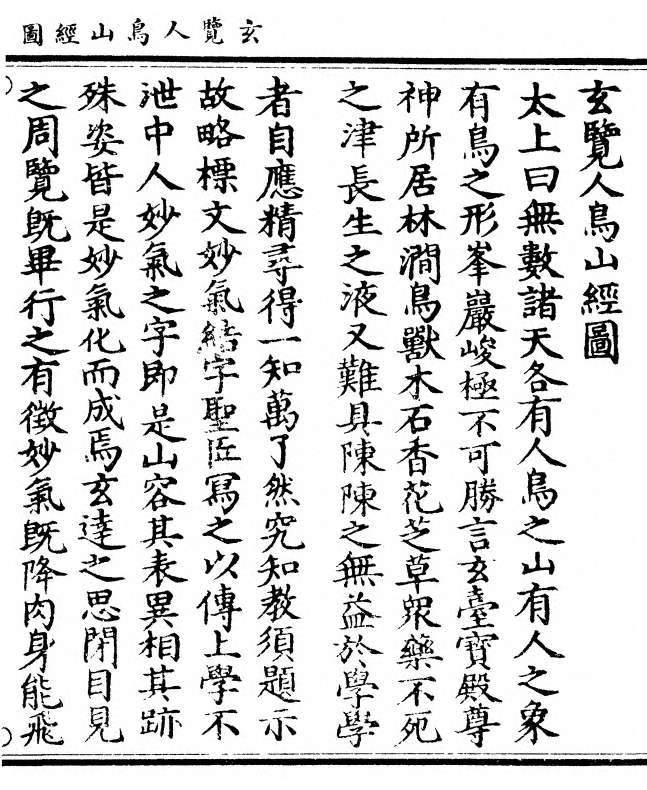 玄覽人鳥山經圖
玄覽人鳥山經圖
太上曰無數諸天各有人鳥之山有人之象
有鳥之形峯巖峻極不可勝言玄臺寶殿尊
神所居林澗鳥獸木石香花芝草眾藥不死
之津長生之液又難具陳陳之無益於學學
者自應精尋得一知萬了然究知教須題示
故略標文妙氣結字聖匠寫之以傳上學不
泄中人妙氣之字即是山容其表異相其跡
殊姿皆是妙氣化而成焉玄達之思閉目見
之周覽既畢行之有徵妙氣既降肉身能飛